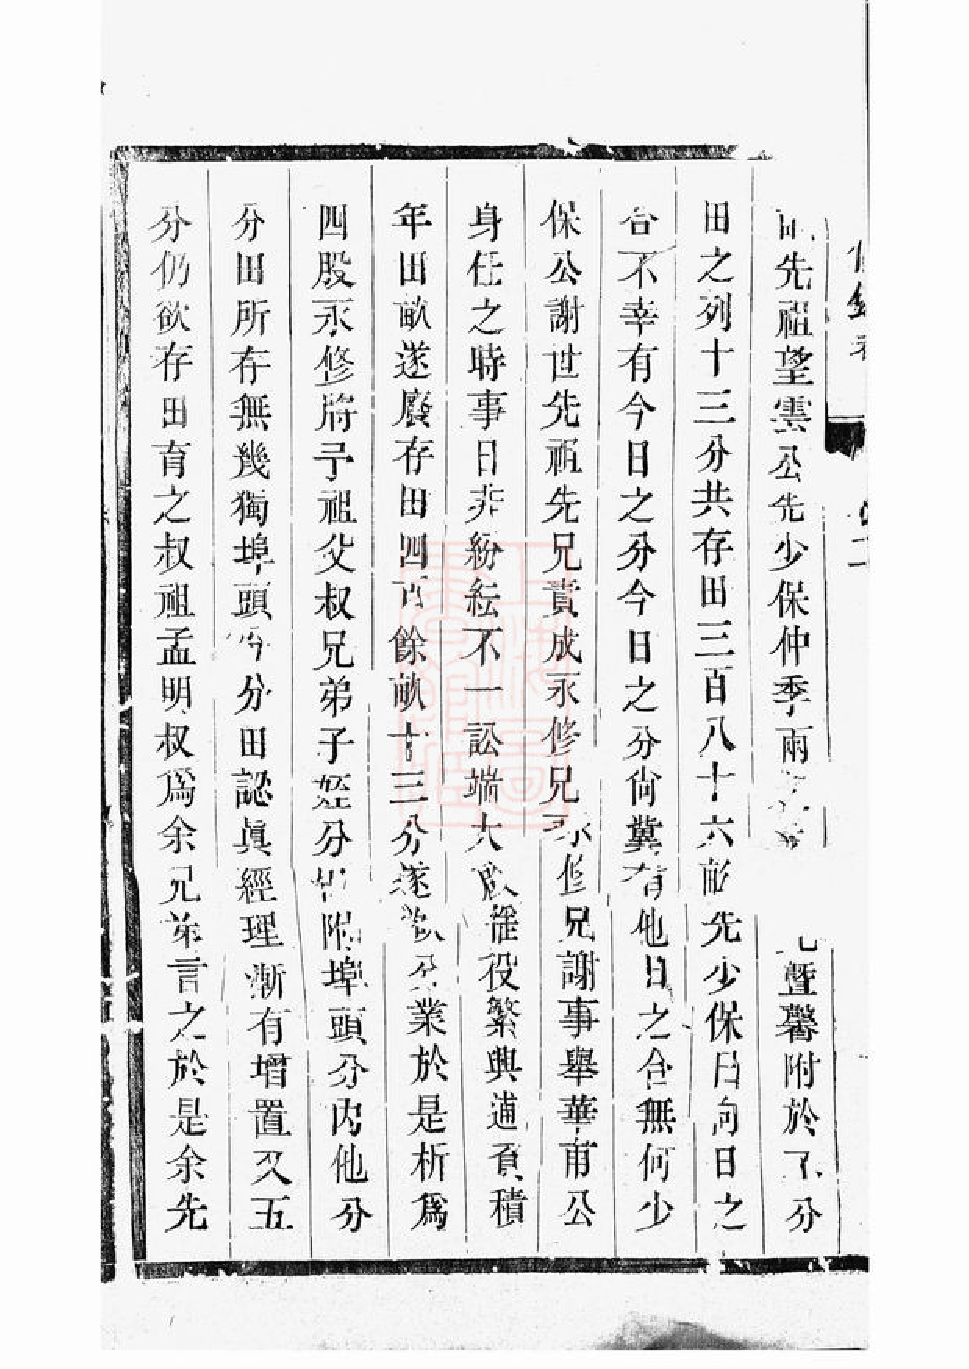 先祖望雲公先少保仲季兩暨馨附於不分
田之列十三分共存田三百八十六畝先少保日向日之
合不幸有今日之分今日之分尙冀有他日之合無何少
保公謝世先祖先兄責成永修兄永修兄謝事舉華甫公
身任之時事日非紛紜不一訟端大啟徭役繁興逋負積
年田畝遂廢存田四百餘畝十三分遂欲分業於是析爲
四股永修將予祖父叔兄弟子姪分附埠頭分內他分
分田所存無幾獨埠頭今分田認眞經理漸有增置又五
分仍欲存田育之叔祖孟明叔爲余兄弟言之於是余先